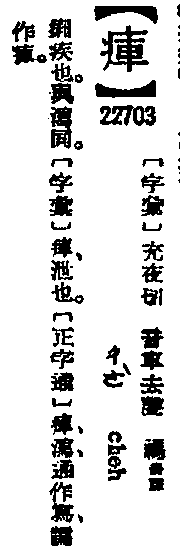 【瘅】
22703
〔字彙〕充夜切 音車去聲 禡
ㄔㄜˋ cheh
痢疾也。與瀉同。〔字彙〕瘅、泄也。〔正字通〕瘅、瀉、通作寫、譌
作瘅。